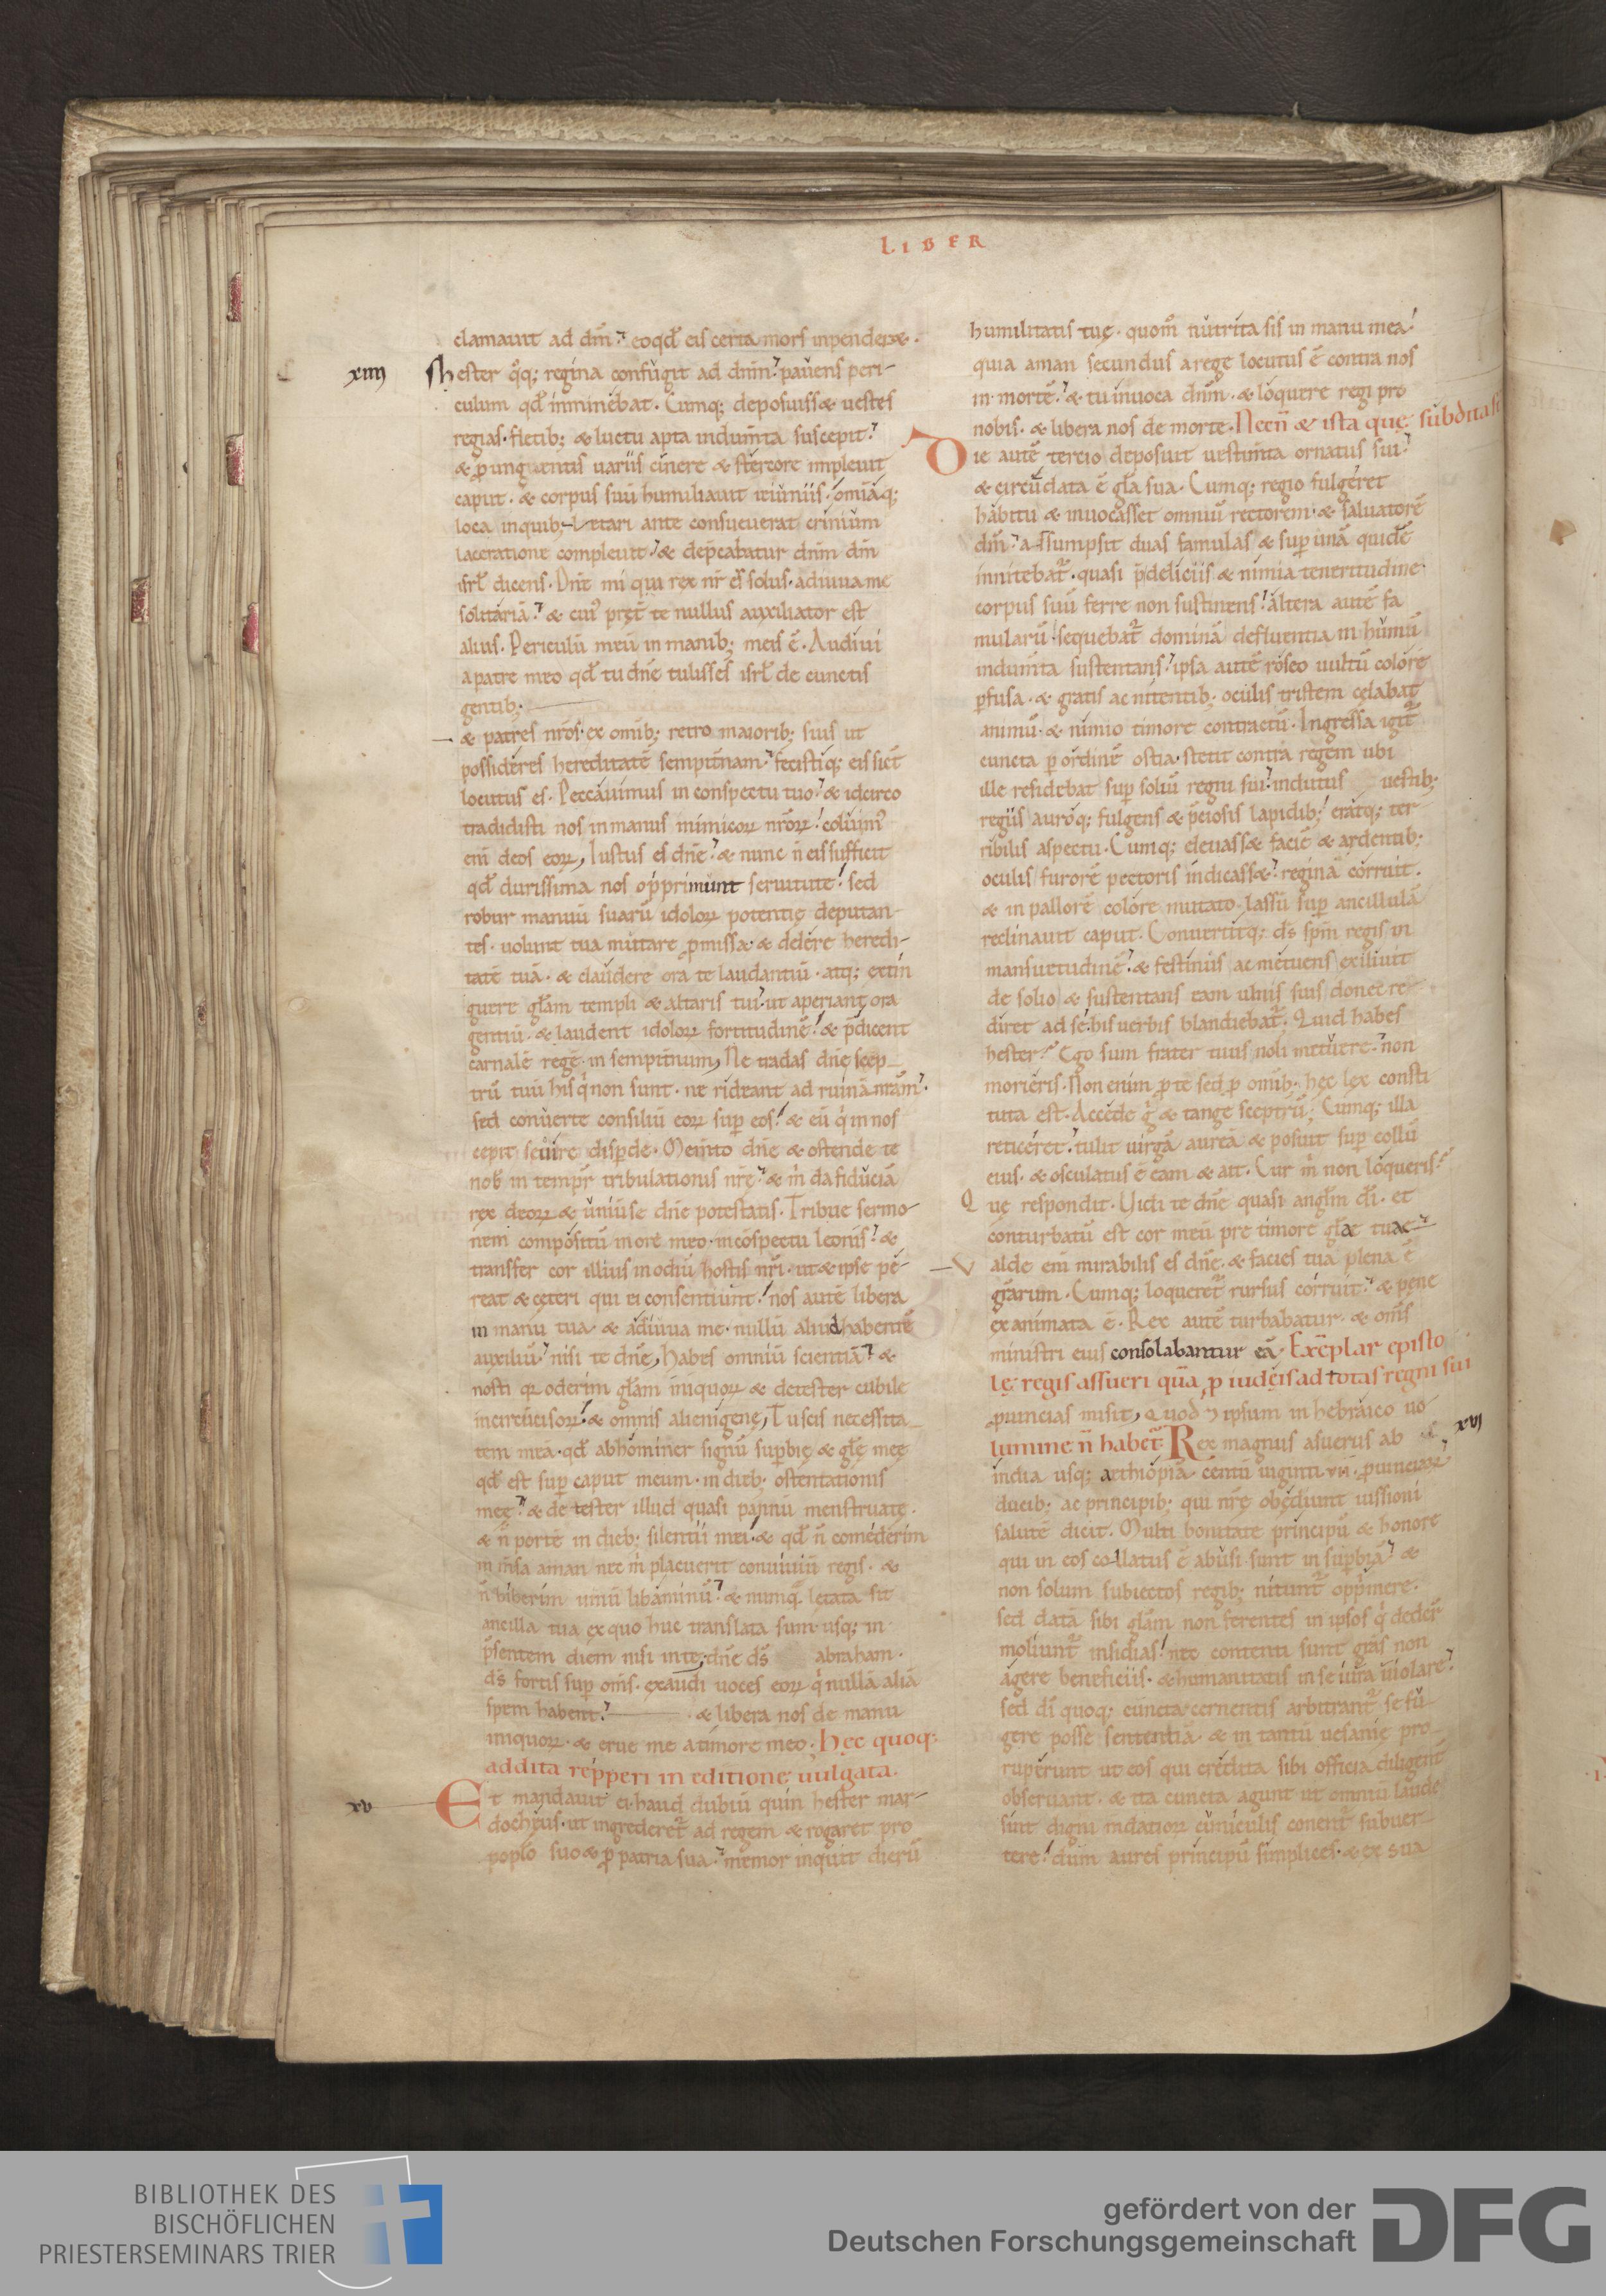 LIBER
clamauit ad dm̄. eoqd̄ eis certa mors inpenderet.
xiiii hester q̊q; regina confugit ad dnm̄. pauens peri-
culum qd̄ inminebat. Cumq; deposuisset uestes
regias. fletib; & luctu apta indum̄ta suscepit.
& p̱ unguentis uariis cinere & stercore impleuit
caput. & corpus suū humiliauit ieiuniis. om̄iaq;
loca in quib; letari ante consueuerat crinium
laceratione compleuit. & dep̄cabatur dnm̄ dm̄
isrl̄ dicens. Dn̄e mi qui rex nr̄ es solus. adiuua me
solitariā. & cui' pręt̄ te nullus auxiliator est
alius. Periculū meū in manib; meis ē. Audiui
a patre meo qd̄ tu dn̄e tulisses isrl̄ de cunctis
gentib;
& patres nr̄os. ex om̄ib; retro maiorib; suis ut
possideres hereditatē sempit̄nam. fecistiq; eis sic̄
locutus es. Peccauimus in conspectu tuo. & idcirco
tradidisti nos in manus inimicoꝝ nr̄oꝝ. coluim'
eni deos eoꝝ, Iustus es dn̄e. & nunc n̄ eis sufficit
qd̄ durissima nos opprimunt seruitute. sed
robur manuū suarū idoloꝝ potentię deputan-
tes. uolunt tua mutare p̱missa. & delere heredi-
tatē tuā. & claudere ora te laudantiū. atq; extin
guere glā̄m templi & altaris tui. ut aperiant ora
gentiū. & laudent idoloꝝ fortitudinē. & p̄dicent
carnalē regē. in sempit̄num, Ne tradas dn̄e scep-
trū tuū his q̇ non sunt. ne rideant ad ruinā nr̄am.
sed conuerte consiliū eoꝝ sup̱ eos. & eū q̇ in nos
cepit sęuire disp̱de. Mem̄to dn̄e & ostende te
nob̄ in tempr̄ tribulationis nr̄ę. & m̄ da fiduciā
rex deoꝝ & uniūse dn̄e potestatis. Tribue sermo-
nem compositū in ore meo. in cōspectu leonis. &
transfer cor illius in odiū hostis nr̄i. ut & ipse pe-
reat & ceteri qui ei consentiunt. nos autē libera
in manu tua. & adiuua me. nullū aliud habentē
auxiliū. nisi te dn̄e, Habes omniū scientiā. &
nosti qꝛ oderim glā̄m iniquoꝝ & detester cubile
incircūcisoꝝ. & omnis alienigenę, Tu scis necessita-
tem meā. qd̄ abhominer signū sup̱bię & glę̄ meę
qd̄ est sup̱ caput meum. in dieb; ostentationis
meę. & detester illud quasi pannū menstruatę.
& n̄ portē in dieb; silentii mei. & qd̄ n̄ comederim
in m̄sa aman nec m̄ placuerit conuiuiū regis. &
n̄ biberim uinū libaminū. & numq̄ letata sit
ancilla tua ex quo huc translata sum. usq; in
p̄sentem diem nisi in te, dn̄e ds̄ abraham.
ds̄ fortis sup̱ om̄s. exaudi uoces eoꝝ q̇ nullā aliā
spem habent. & libera nos de manu
iniquoꝝ. & erue me a timore meo. Hęc quoq;
addita repperi in editione uulgata.
xv Et mandauit ei. haud dubiū quin hester mar-
docheus. ut ingrederet̄ ad regem & rogaret pro
poplo suo & p̱ patria sua. memor inquit dierū
humilitatis tuę. quom̄ nutrita sis in manu mea.
quia aman secundus a rege locutus ē contra nos
in mortē. & tu inuoca dnm̄. & loquere regi pro
nobis. & libera nos de morte. Necn̄ & ista quę subdita st̄
Die autē tercio deposuit uestim̄ta ornatus sui.
& circūdata ē glā̄ sua. Cumq; regio fulgeret
habitu & inuocasset omniū rectorem. & saluatorē
dm̄. assumpsit duas famulas & sup̱ unā quidē
innitebat̄. quasi p̄ deliciis & nimia teneritudine
corpus suū ferre non sustinens. altera autē fa
mularū. sequebat̄ dominā defluentia in humū
indum̄ta sustentans. ipsa autē roseo uultū colore
p̱fusa. & gratis ac nitentib; oculis tristem celabat
animū. & nimio timore contractū. Ingressa igit̄
cuncta p̱ ordinē ostia. stetit contra regem ubi
ille residebat sup̱ soliū regni sui. indutus uestib;
regiis auroq; fulgens & p̄ciosis lapidib; eratq; ter-
ribilis aspectu. Cumq; eleuasset faciē & ardentib;
oculis furorē pectoris indicasset. regina corruit.
& in pallorē colore mutato. lassū sup̱ ancillulā
reclinauit caput. Conuertitq; ds̄ spm̄ regis in
mansuetudinē. & festinus ac metuens exiliuit
de solio & sustentans eam ulnis suis donec re-
diret ad se. his uerbis blandiebat̄. Quid habes
hester? Ego sum frater tuus noli metuere. non
morieris. Non enim p̱ te sed p̱ om̄ib; hęc lex consti
tuta est. Accede g̊ & tange sceptrū, Cumq; illa
reticeret. tulit uirgā aureā & posuit sup̱ collū
eius. & osculatus ē eam & ait. Cur m̄ non loqueris?
Quę respondit. Uidi te dn̄e quasi anglm̄ dī. et
conturbatū est cor meū pre timore glāe tuae.
Valde eni mirabilis es dn̄e. & facies tua plena ē
grārum. Cumq; loqueret̄ rursus corruit. & pene
exanimata ē. Rex autē turbabatur. & om̄s
ministri eius consolabantur eā. Exēplar episto
lę regis assueri quā p̱ iudęis ad totas regni sui
p̱uincias misit, quod & ipsum in hebraico uo
lumine n̄ habet̄. Rex magnus asuerus ab xvi
india usq; aethiopiā centū uiginti vii. p̱uinciaꝝ
ducib; ac principib; qui nr̄ę obediunt iussioni
salutē dicit. Multi bonitate principū & honore
qui in eos collatus ē abusi sunt in sup̱biā. &
non solum subiectos regib; nitunt̄ opp̄mere.
sed datā sibi glā̄m non ferentes in ipsos q̇ dederr̄
moliunt̄ insidias. nec contenti sunt grās non
agere beneficiis. & humanitatis in se iura uiolare.
sed dī quoq; cuncta cernentis arbitrant̄ se fu-
gere posse sententiā. & in tantū uesanię pro-
ruperunt ut eos qui credita sibi officia diligent̄
obseruant. & ita cuncta agunt ut omniū laude
sint digni mdatioꝝ cuniculis conent̄ subuer-
tere. dum aures principū simplices. & ex sua
BIBLIOTHEK DES
BISCHÖFLICHEN
PRIESTERSEMINARS TRIER
gefördert von der
Deutschen Forschungsgemeinschaft
DFG